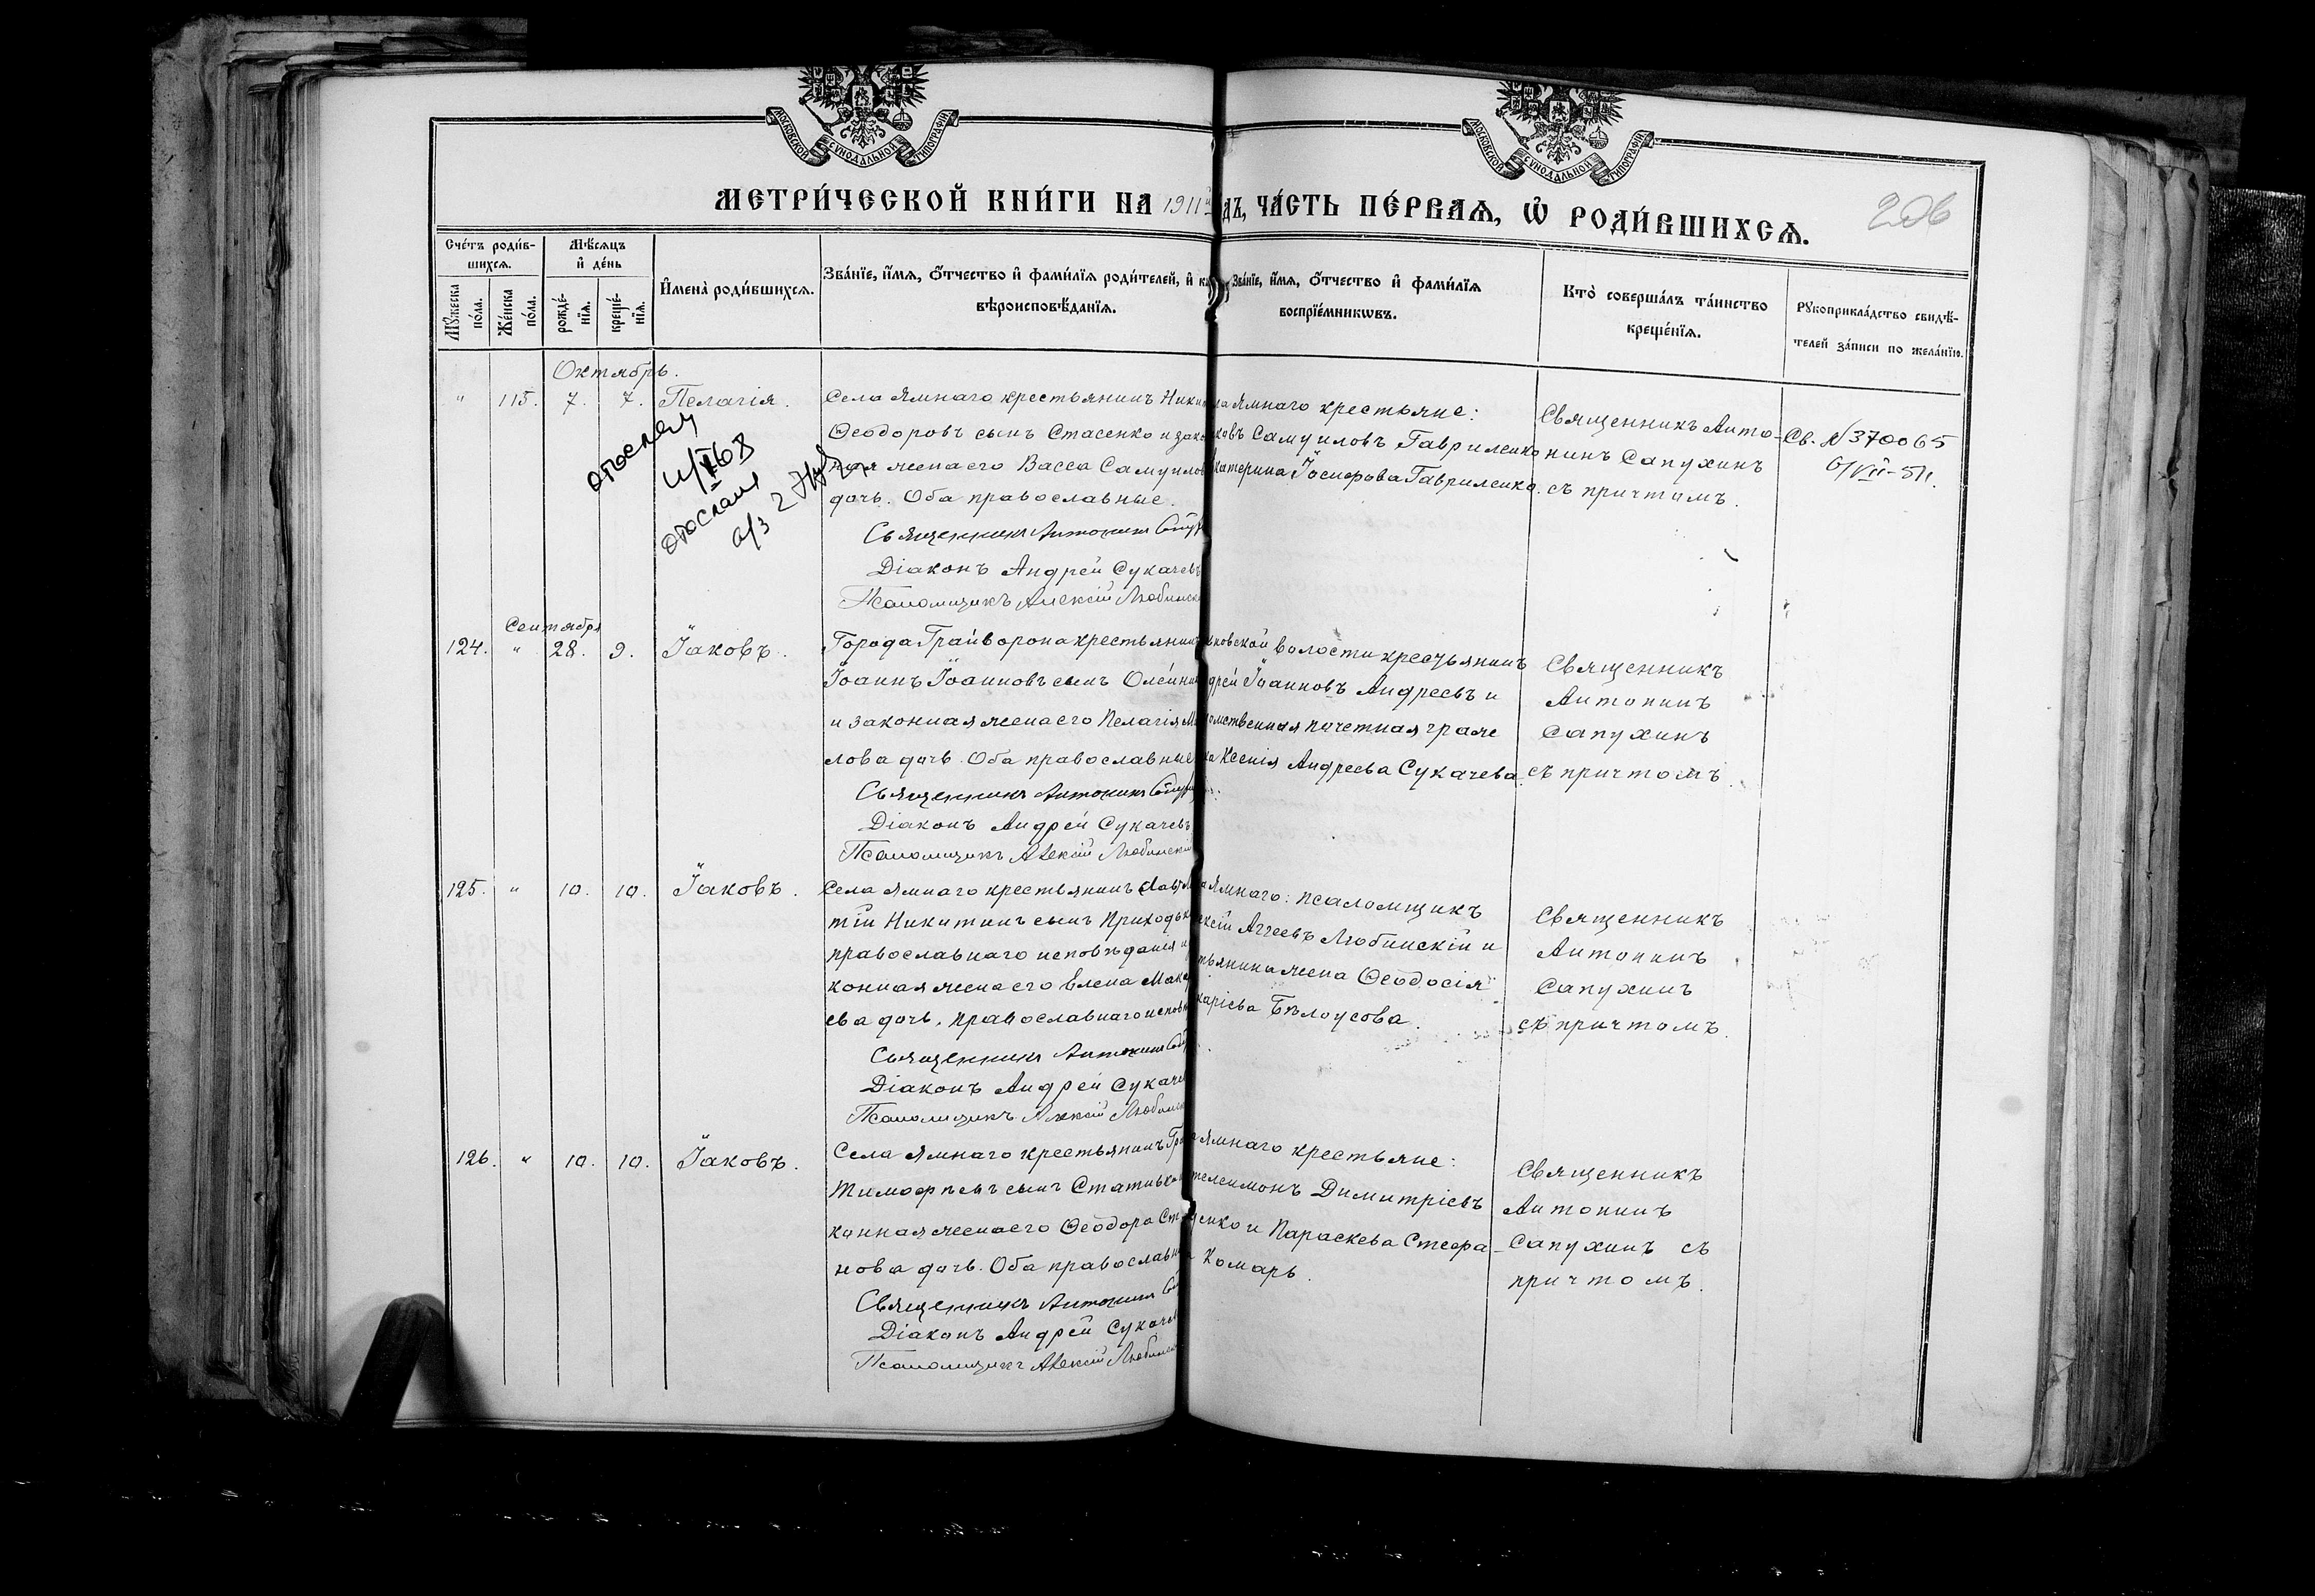 МОСКОВСКОЙ СУНОДАЛЬНОЙ ТИПОГРАФІИ
МОСКОВСКОЙ СУНОДАЛЬНОЙ ТИПОГРАФІИ
МЕТРИ́ЧЕСКОЙ КНИ́ГИ НА 1911 й дъ, ЧА́СТЬ ПЕ́РВАѦ, Ѡ҆ РОДИ́ВШИХСѦ.
Сче́тъ роди́в-
шихсѧ.
Мѣ́сяцъ
и҆ де́нь
Мꙋ́жеска
по́ла.
Же́нска
по́ла.
рожде́-
нїѧ.
креще́-
нїѧ.
И҆мена̀ роди́вшихсѧ.
Зва́нїе, и҆́мѧ, ѻ҆́тчество и҆ фами́лїѧ роди́телей, и҆
вѣроисповѣ́данїѧ.
Зва́нїе, и҆́мѧ, ѻ҆́тчество и҆ фами́лїѧ
воспрїе́мникѡвъ.
Кто̀ соверша́лъ та́инство
креще́нїѧ.
Рꙋкоприкла́дство свидѣ́-
телей за́писи по жела́нїю.
Октябрь.
" 115. 7. 7. Пелагія.
Села Ямнаго крестьянинъ Ники
Ѳеодоровъ сынъ Стасенко и зако
ная жена его Васса Самуилов
дочь. Оба православные.
Священникъ Антонинъ
Діаконъ Андрей Сукачевъ
Псаломщикъ Алексій Любинск
ла Ямнаго крестьяне:
ковъ Самуиловъ Гавриленко
катерина Іосифова Гавриленко.
Священникъ Анто-
нинъ Сапухинъ
съ причтомъ.
Св. № 370065
6/VII-51г.
Сентября
124. " 28. 9. Іаковъ.
Города Грайворона крестьянинъ
Іоаннъ Іоанновъ сынъ Олейник
и законная жена его Пелагія М
лова дочь. Оба православные
Священникъ Антонинъ
Діаконъ Андрей Сукачевъ
Псаломщикъ Алексій Любинскій
ковской волости крестьянинъ
дрей Іоанновъ Андреевъ и
омственная почетная граж
ка Ксенія Андреева Сукачева.
Священникъ
Антонинъ
Сапухинъ
съ причтомъ.
125. " 10. 10. Іаковъ.
Села Ямнаго крестьянинъ Лавр
тій Никитинъ сынъ Приходьк
православнаго исповѣданія и
конная жена его Елена Мака
ева дочь, православнаго исповѣ
Священникъ Антонинъ
Діаконъ Андрей Сукаче
Псаломщикъ Алексій Любинск
а Ямнаго: псаломщикъ
ксій Аггеевъ Любинскій и
тьянина жена Ѳеодосія
карієва Бѣлоусова.
Священникъ
Антонинъ
Сапухинъ
съ причтомъ.
126. " 10. 10. Іаковъ.
Села Ямнаго крестьянинъ Гр
Тимоѳеевъ сынъ Стативко
конная жена его Ѳеодора Ст
нова дочь. Оба православн
Священникъ Антонинъ
Діаконъ Андрей Сукачев
Псаломщикъ Алексій Любинск
Ямнаго крестьяне:
телеимонъ Димитріевъ
енко и Параскева Стефа-
Комарь.
Священникъ
Антонинъ
Сапухинъ съ
причтомъ.